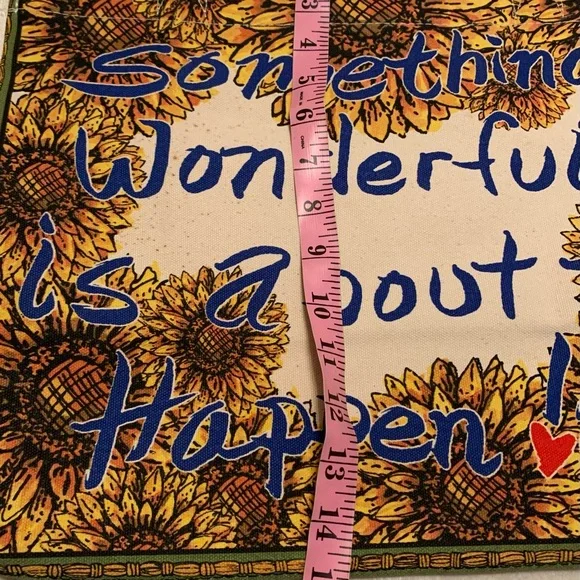 Something
Wonderful
is About
Happen!
3
4
5
6
7
8
9
10
11
12
13
14